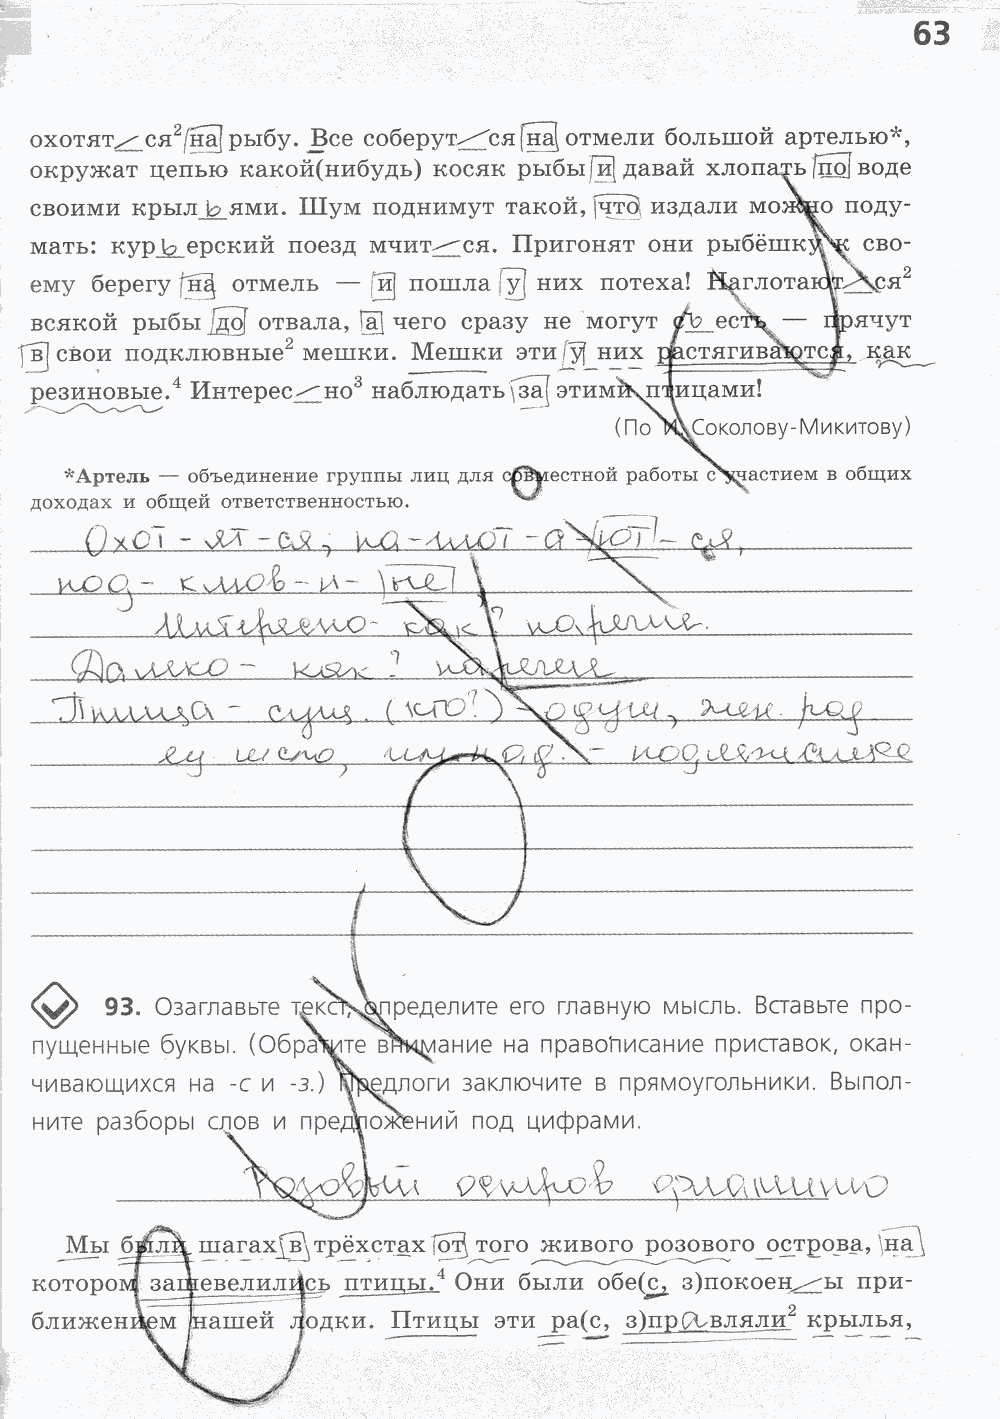 63
охотят ся² на рыбу. Все соберут ся на отмели большой артелью*,
окружат цепью какой(нибудь) косяк рыбы и давай хлопать по воде
своими крыльями. Шум поднимут такой, что издали можно поду-
мать: курьерский поезд мчит ся. Пригонят они рыбёшку к сво-
ему берегу на отмель — и пошла у них потеха! Наглотают ся²
всякой рыбы до отвала, а чего сразу не могут съесть — прячут
в свои подклювные² мешки. Мешки эти у них растягиваются, как
резиновые.⁴ Интерес но³ наблюдать за этими птицами!
(По И. Соколову-Микитову)
*Артель — объединение группы лиц для совместной работы с участием в общих
доходах и общей ответственностью.
Охот-ят-ся, на-глот-а-ют-ся,
под-клюв-н-ые,
Интересно- как? наречие.
Далеко- как? наречие
Птица- сущ. (кто?) - одуш, жен. род
ед. число, им. пад. - подлежащее
93. Озаглавьте текст, определите его главную мысль. Вставьте про-
пущенные буквы. (Обратите внимание на правописание приставок, окан-
чивающихся на -с и -з.) Предлоги заключите в прямоугольники. Выпол-
ните разборы слов и предложений под цифрами.
Розовый остров фламинго
Мы были шагах в трёхстах от того живого розового острова, на
котором зашевелились птицы.⁴ Они были обе(с, з)покоен ы при-
ближением нашей лодки. Птицы эти ра(с, з)правляли² крылья,